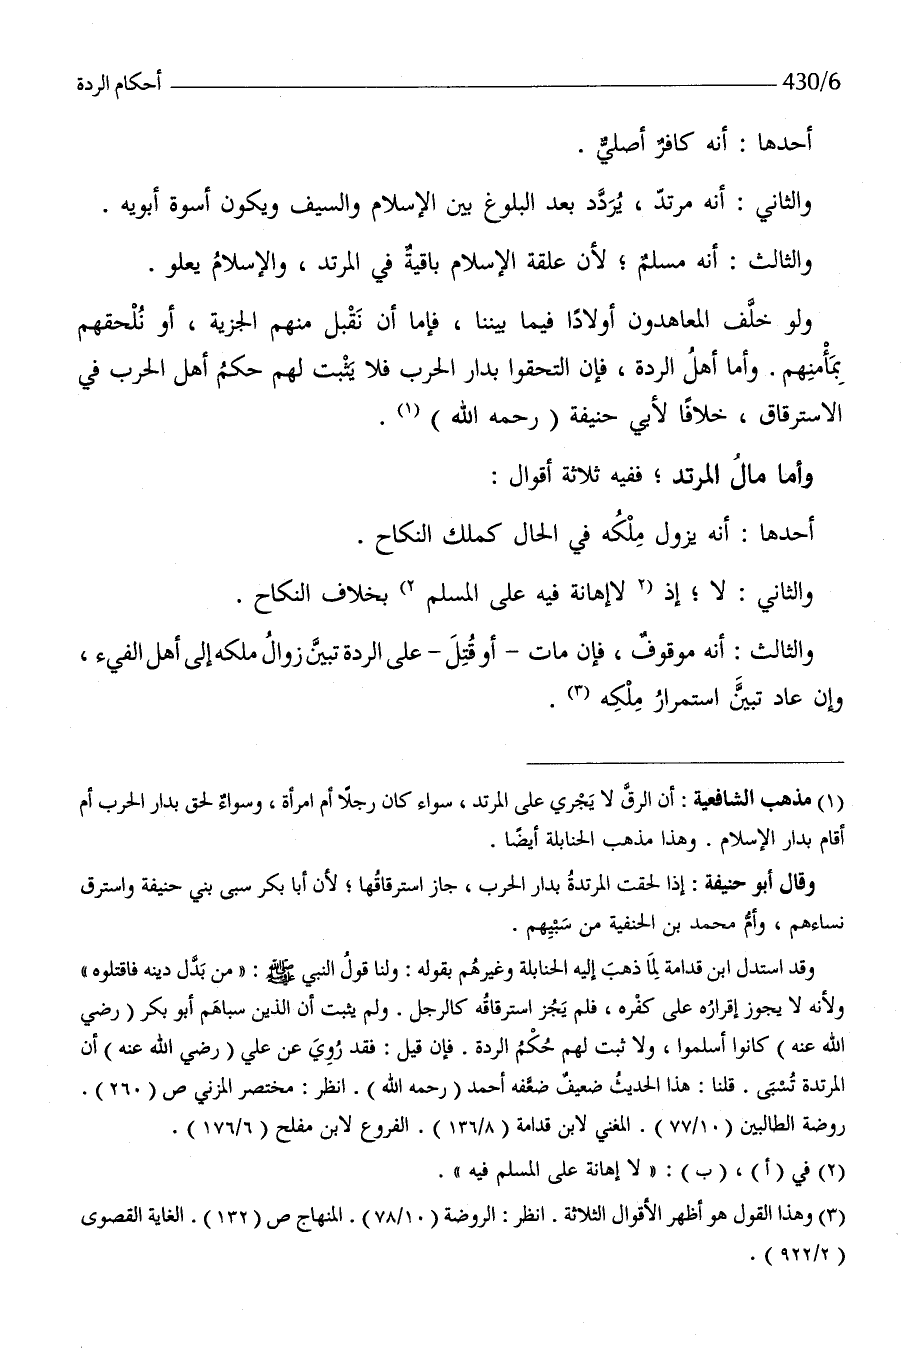 430/6 أحكام الردة
أحدها : أنه كافرٌ أصليٌّ .
والثاني : أنه مرتدّ ، يُرَدَّد بعد البلوغ بين الإسلام والسيف ويكون أسوة أبويه .
والثالث : أنه مسلمٌ ؛ لأن علقة الإسلام باقيةٌ في المرتد ، والإسلامُ يعلو .
ولو خلَّف المعاهدون أولادًا فيما بيننا ، فإما أن نَقْبل منهم الجزية ، أو نُلْحقهم
بِمَأْمنِهم . وأما أهلُ الردة ، فإن التحقوا بدار الحرب فلا يَثْبت لهم حكمُ أهل الحرب في
الاسترقاق ، خلافًا لأبي حنيفة ( رحمه الله ) (١) .
وأما مالُ المرتد ؛ ففيه ثلاثة أقوال :
أحدها : أنه يزول مِلْكُه في الحال كملك النكاح .
والثاني : لا ؛ إذ (٢ لاإهانة فيه على المسلم ٢) بخلاف النكاح .
والثالث : أنه موقوفٌ ، فإن مات - أو قُتِلَ - على الردة تبينَّ زوالُ ملكه إلى أهل الفيء ،
وإن عاد تبينَّ استمرارُ مِلْكِه (٣) .
(١) مذهب الشافعية : أن الرقَّ لا يَجْري على المرتد ، سواء كان رجلًا أم امرأة ، وسواءٌ لحق بدار الحرب أم
أقام بدار الإسلام . وهذا مذهب الحنابلة أيضًا .
وقال أبو حنيفة : إذا لحقت المرتدةُ بدار الحرب ، جاز استرقاقُها ؛ لأن أبا بكر سبى بني حنيفة واسترق
نساءهم ، وأمُّ محمد بن الحنفية من سَبْيِهم .
وقد استدل ابن قدامة لِمَا ذهبَ إليه الحنابلة وغيرهُم بقوله : ولنا قولُ النبي ﷺ : « من بَدَّل دينه فاقتلوه »
ولأنه لا يجوز إقرارُه على كفْره ، فلم يَجُز استرقاقُه كالرجل . ولم يثبت أن الذين سباهَم أبو بكر ( رضي
الله عنه ) كانوا أسلموا ، ولا ثبت لهم حُكْمُ الردة . فإن قيل : فقد رُوِيَ عن علي ( رضي الله عنه ) أن
المرتدة تُسْبَى . قلنا : هذا الحديثُ ضعيفٌ ضعَّفه أحمد ( رحمه الله ) . انظر : مختصر المزني ص ( ٢٦٠ ) .
روضة الطالبين ( ٧٧/١٠ ) . المغني لابن قدامة ( ١٣٦/٨ ) . الفروع لابن مفلح ( ١٧٦/٦ ) .
(٢) في ( أ ) ، ( ب ) : « لا إهانة على المسلم فيه » .
(٣) وهذا القول هو أظهر الأقوال الثلاثة . انظر : الروضة ( ٧٨/١٠ ) . المنهاج ص ( ١٣٢ ) . الغاية القصوى
( ٩٢٢/٢ ) .